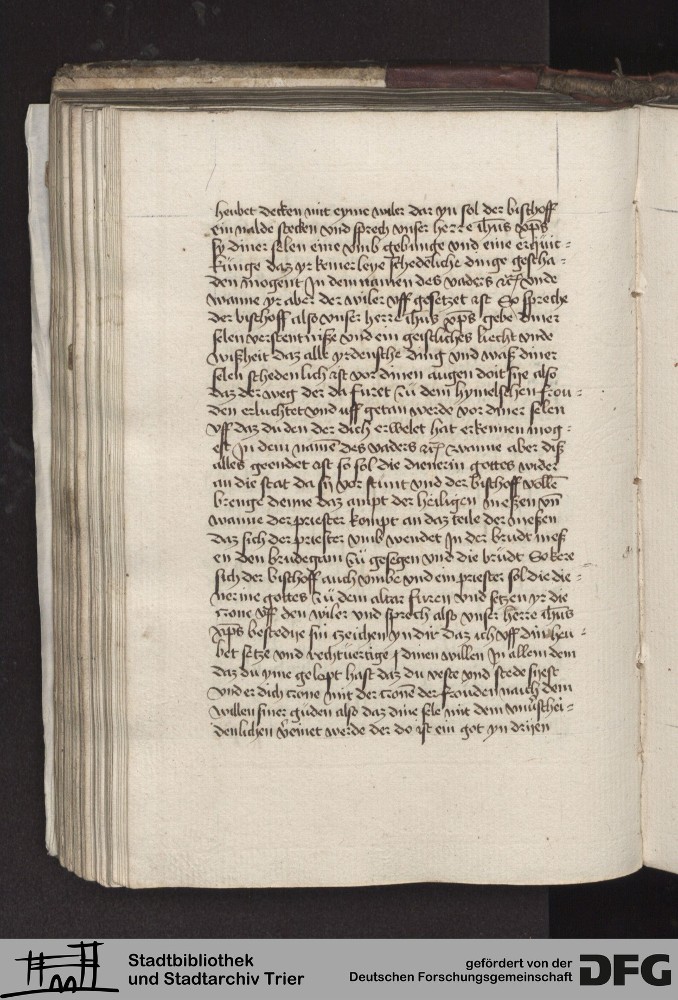 heubet decken mit eyme wiler dar yn sol der bischoff
ein nalde stecken vnd sprech vnser herre ihus xp̄s
sy diner selen eine vmb gebunge vnd eine erquic=
kunge daz yr keinerleye schedeliche dinge gescha=
den mogent In dem namen des vaders ꝛc̄ vnde
wanne yr aber der wiler vff gesetzet ist So spreche
der bischoff also vnser herre ihus xp̄s gebe diner
selen verstentniße vnd ein geistliches liecht vnde
wißheit daz alle yrdensche ding vnd waß diner
selen schedenlich ist vor dinen augen doit sye also
daz der weg der da furet zü dem hymelschen frou=
den erluchtet vnd uff getan werde vor diner selen
vff daz du den der dich erwelet hat erkennen mog=
est In dem namē des vaders ꝛc̄ wanne aber diß
alles geendet ist so sol die dienerin gottes wider
an die stat da sy vor stunt vnd der bischoff vollē
brenge denne daz ampt der heiligen meßen vn̄
wanne der priester kompt an daz teile der meßen
daz sich der priester vmb wendet In der brudt meß
en den brudegam zü gesegen vnd die brudt So kere
sich der bischoff auch vmbe vnd ein priester sol die die=
nerine gottes zü dem altar furen vnd setzen yr die
crone vff den wiler vnd sprech also vnser herre ihus
xp̄s bestedije sin czeichen yn dir daz ich vff din heu=
bet setze vnd rechtuertige dinen willen In allem dem
daz du yme gelopt hast daz du veste vnd stede syest
vnd er dich crone mit der cronē der frouden nauch dem
willen siner guden also daz dine sele mit dem vnuschei=
denlichen v̄einet werde der do ist ein got yn drijen
Stadtbibliothek
und Stadtarchiv Trier
gefördert von der
Deutschen Forschungsgemeinschaft
DFG